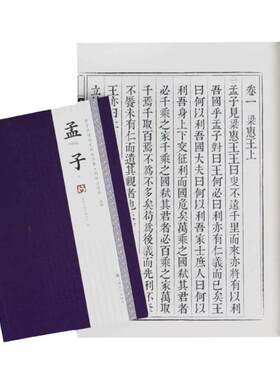 卷一 梁惠王上
孟子見梁惠王王曰叟不遠千里而來亦將有以利
吾國乎孟子對曰王何必曰利亦有仁義而已矣王
曰何以利吾國大夫曰何以利吾家士庶人曰何以
利吾身上下交征利而國危矣萬乘之國弒其君者
必千乘之家千乘之國弒其君者必百乘之家萬取
千焉千取百焉不爲不多矣苟爲後義而先利不
不饜未有仁而遺其親者
王亦曰
孟子